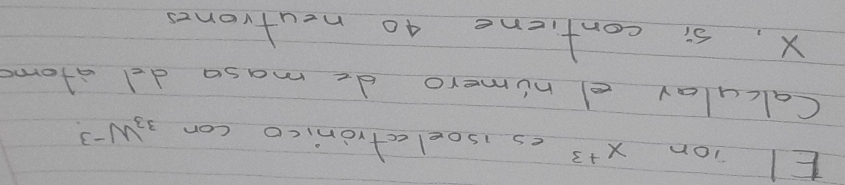 El ion X+3 es isoelectrónico con 33W-3.
Calcular el número de masa del átomo
X, si contiene 40 neutrones